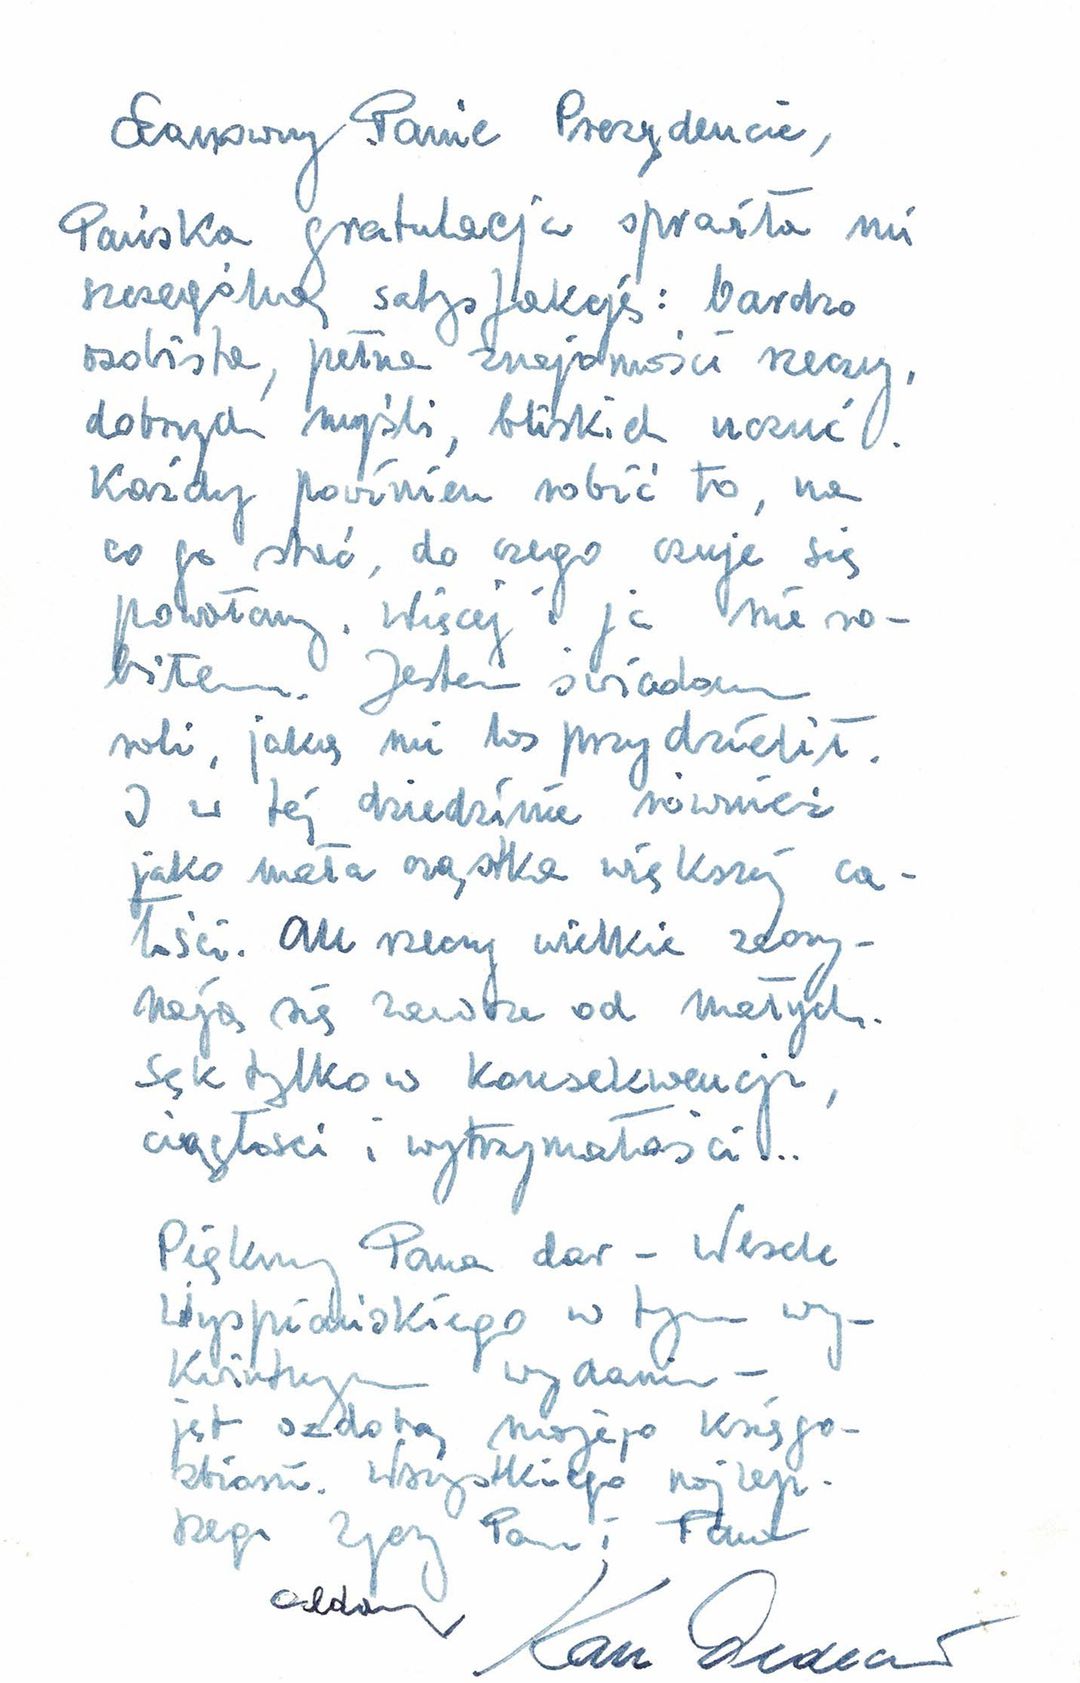 Szanowny Panie Prezydencie,
Pańska gratulacja sprawiła mi
szczególną satysfakcję: bardzo
osobista, pełna znajomości rzeczy,
dobrych myśli, bliskich uczuć.
Każdy powinien robić to, na
co go stać, do czego czuje się
powołany. Więcej i ja nie ro-
biłem. Jestem świadom
roli, jaką mi los przydzielił.
I w tej dziedzinie również
jako mała cząstka większej ca-
łości. Ale rzeczy wielkie zaczy-
nają się zawsze od małych.
Sęk tylko w konsekwencji,
ciągłości i wytrzymałości...
Piękny Pana dar – Wesele
Wyspiańskiego w tym wy-
kwintnym wydaniu –
jest ozdobą mojego księgo-
zbioru. Wszystkiego najlep-
szego życzy Panu i Pana
oddany
Karl Dedecius